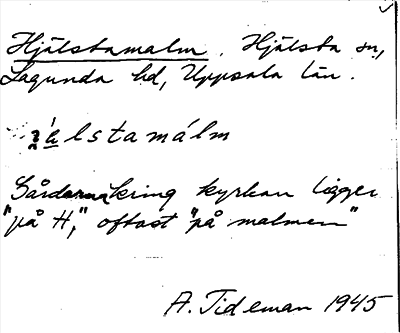 Hjälstamalm. Hjälsta sn,
Lagunda hd, Uppsala län.
jä́lstamálm
Gårdarna kring kyrkan ligger
"på H", oftast "på malmen"
A. Tideman 1945